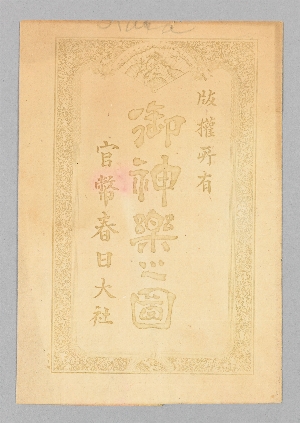 版權所有
御神樂之圖
官幣春日大社